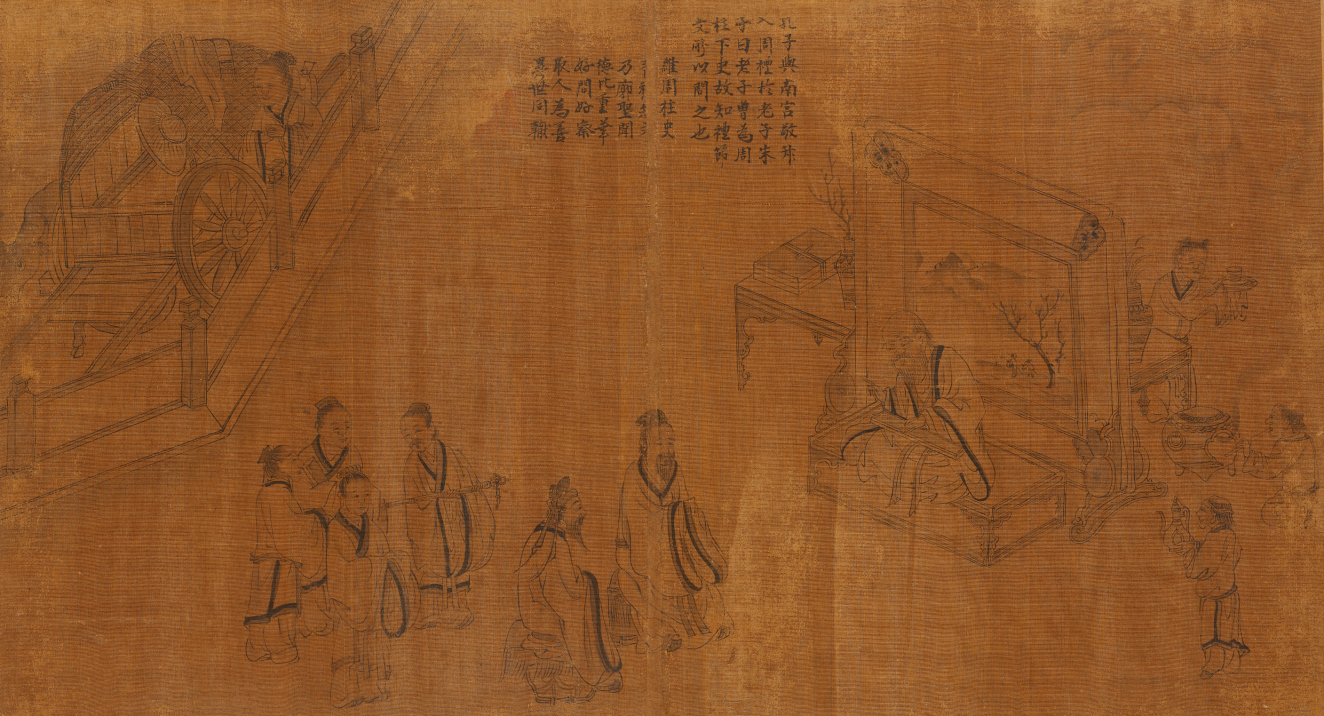 孔子與南宮敬叔
入周禮於老子朱
子曰老子曾為周
柱下史故知禮節
文所以問之也
維周柱史
乃廟聖聞
德比重華
好問好察
取人為善
異世同轍